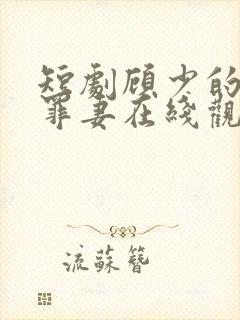 短劇顾少的
罪妻在綫觀
流蘇簪